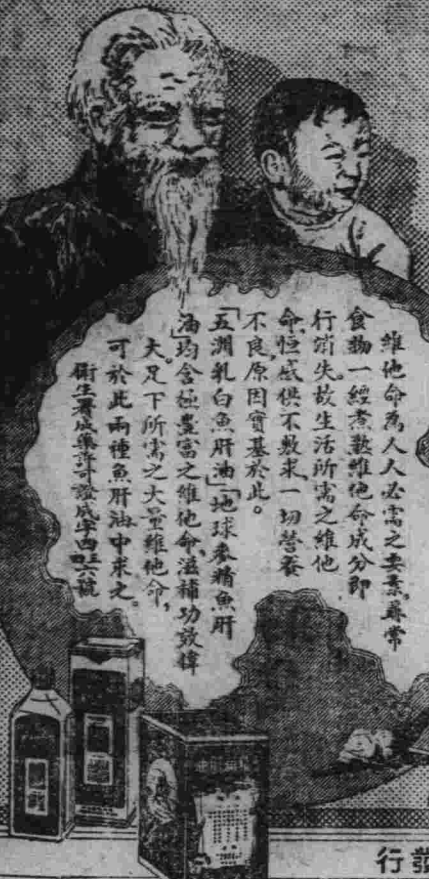 維他命為人人必需之要素,尋常
食物一經煮熟維他命成分即
行消失。故生活所需之維他
命,恒感供不敷求,一切營養
不良原因實基於此。
「五洲乳白魚肝油」「地球麥精魚肝
油」均含極豐富之維他命,滋補功效偉
大。足下所需之大量維他命,
可於此兩種魚肝油中求之。
衛生署成藥許可證成字四
行發